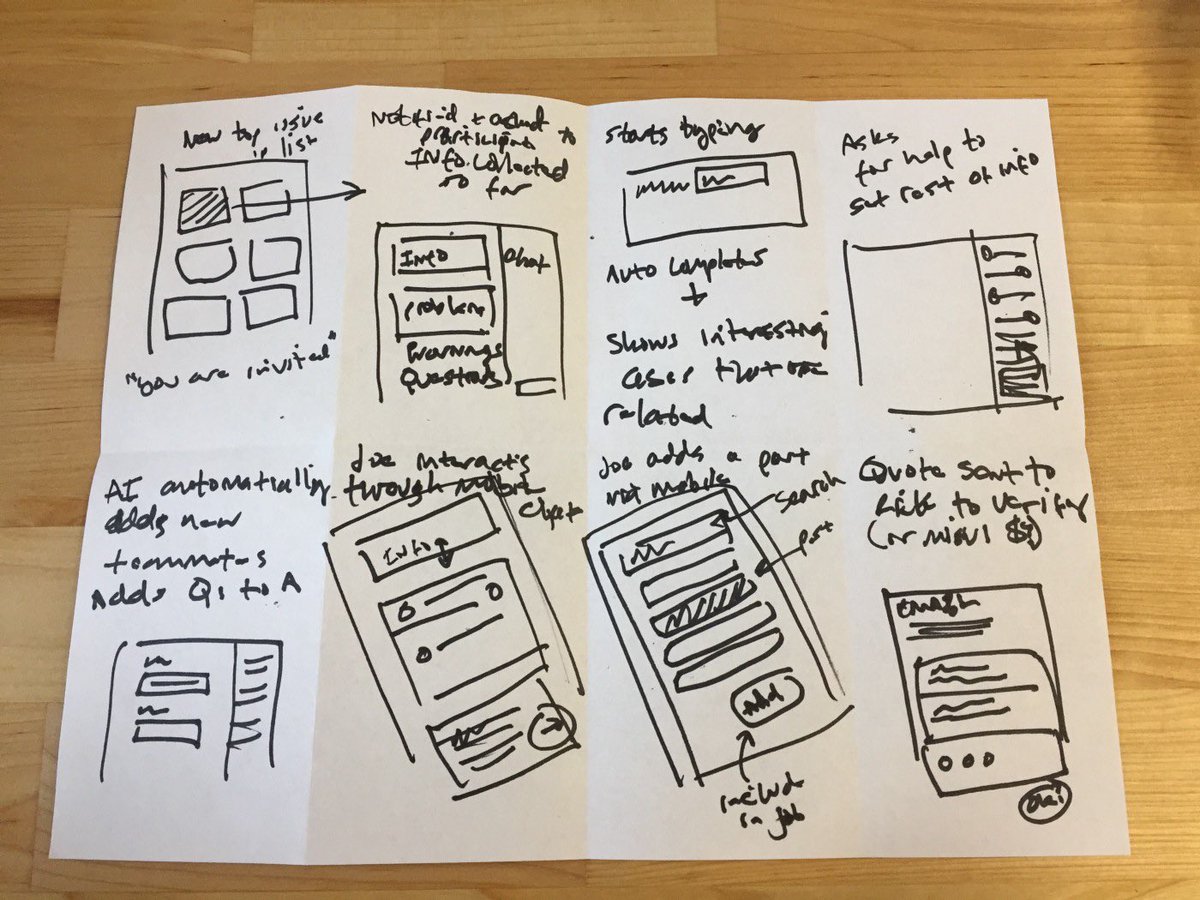 New top issue
in list
"you are invited"
participant to
Info collected
so far
Info
Chat
problem
Warnings
Questions
starts typing
Auto completes
+
Shows interesting
cases that are
related
Asks
for help to
get rest of info
AI automatically
adds new
teammates
Adds Qs to A
Joe interacts
through mobile
Info
Joe adds a part
via mobile
search
part
Add
include
in job
Quote sent to
to verify
EMAIL